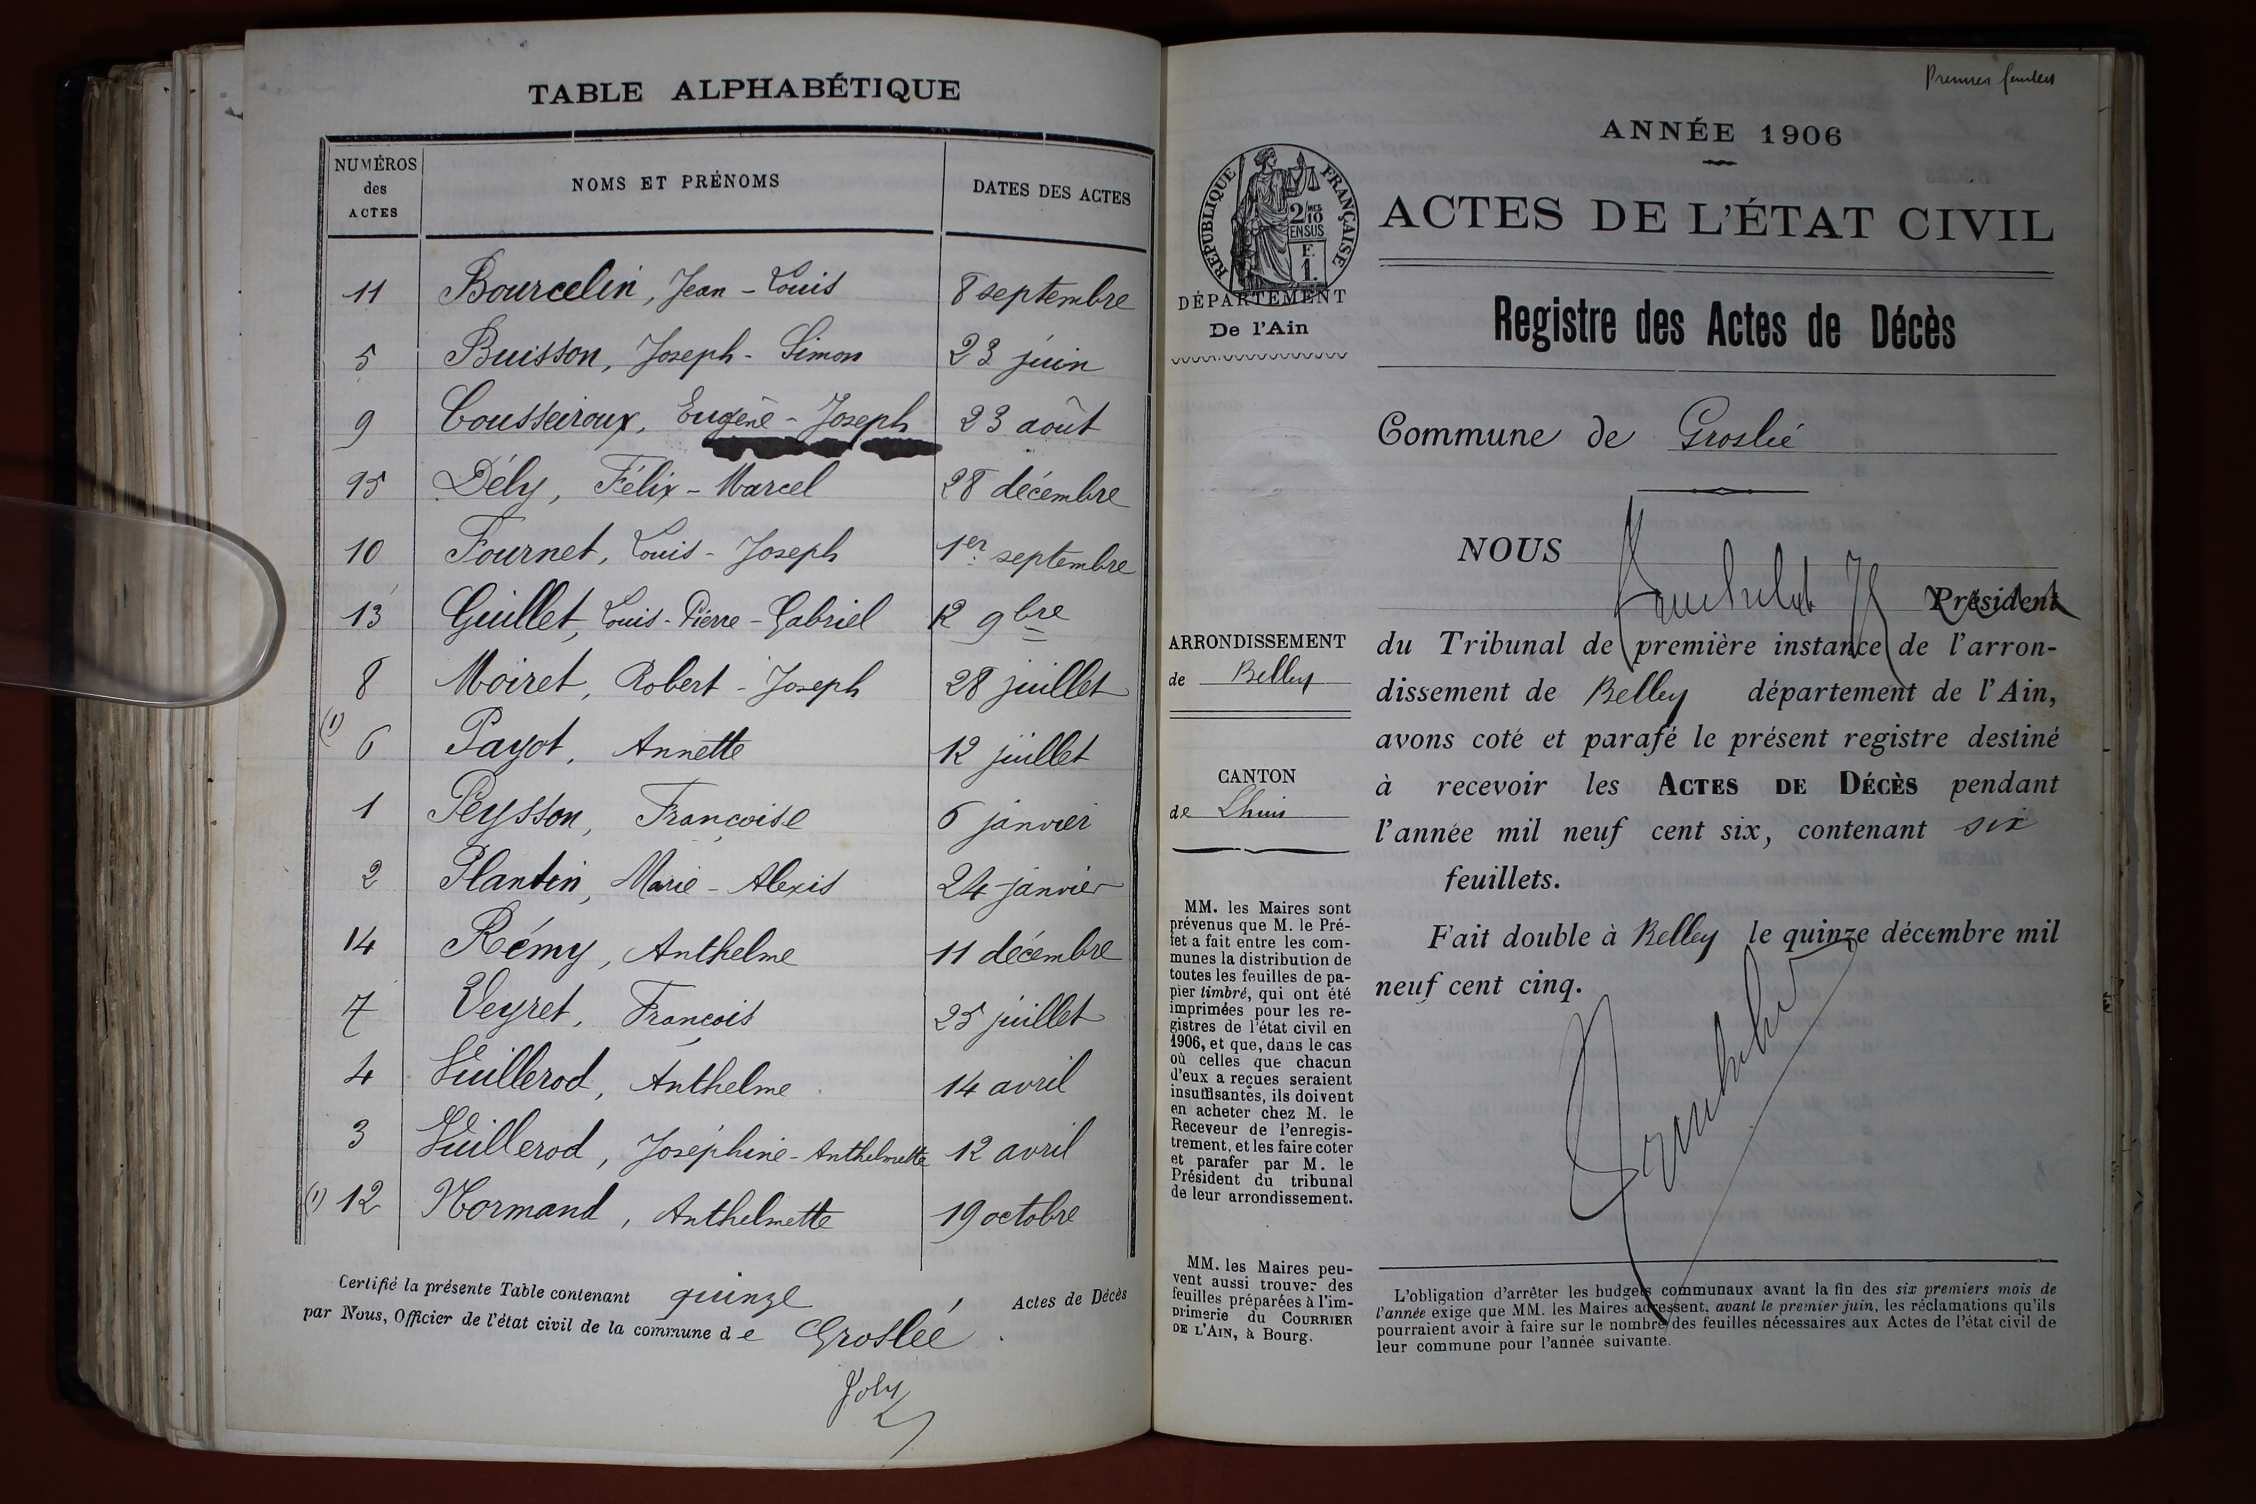 TABLE ALPHABÉTIQUE
NUMÉROS des ACTES NOMS ET PRÉNOMS DATES DES ACTES
11 Bourcelin, Jean-Louis 8 septembre
5 Buisson, Joseph-Simon 23 juin
9 Cousseiroux, Eugène-Joseph 23 août
15 Dély, Félix-Marcel 28 décembre
10 Fournet, Louis-Joseph 1er septembre
13 Guillet, Louis-Pierre-Gabriel 12 9bre
8 Moiret, Robert-Joseph 28 juillet
(1) 6 Payot, Annette 12 juillet
1 Peysson, Françoise 6 janvier
2 Plantin, Marie-Alexis 24 janvier
14 Rémy, Anthelme 11 décembre
7 Veyret, François 25 juillet
4 Vuillerod, Anthelme 14 avril
3 Vuillerod, Joséphine-Anthelmette 12 avril
(1) 12 Normand, Anthelmette 19 octobre
Certifié la présente Table contenant quinze Actes de Décès
par Nous, Officier de l'état civil de la commune de Groslée.
Joly
Premier feuillet
ANNÉE 1906
RÉPUBLIQUE FRANÇAISE
2/10 MES
EN SUS
F.
1.
ACTES DE L'ÉTAT CIVIL
DÉPARTEMENT
De l'Ain
Registre des Actes de Décès
Commune de Groslée
NOUS
Président
du Tribunal de première instance de l'arron-
dissement de Belley département de l'Ain,
avons coté et parafé le présent registre destiné
à recevoir les ACTES DE DÉCÈS pendant
l'année mil neuf cent six, contenant six
feuillets.
Fait double à Belley le quinze décembre mil
neuf cent cinq.
ARRONDISSEMENT
de Belley
CANTON
de Lhuis
MM. les Maires sont
prévenus que M. le Pré-
fet a fait entre les com-
munes la distribution de
toutes les feuilles de pa-
pier timbré, qui ont été
imprimées pour les re-
gistres de l'état civil en
1906, et que, dans le cas
où celles que chacun
d'eux a reçues seraient
insuffisantes, ils doivent
en acheter chez M. le
Receveur de l'enregis-
trement, et les faire coter
et parafer par M. le
Président du tribunal
de leur arrondissement.
MM. les Maires peu-
vent aussi trouver des
feuilles préparées à l'im-
primerie du COURRIER
DE L'AIN, à Bourg.
L'obligation d'arrêter les budgets communaux avant la fin des six premiers mois de
l'année exige que MM. les Maires adressent, avant le premier juin, les réclamations qu'ils
pourraient avoir à faire sur le nombre des feuilles nécessaires aux Actes de l'état civil de
leur commune pour l'année suivante.